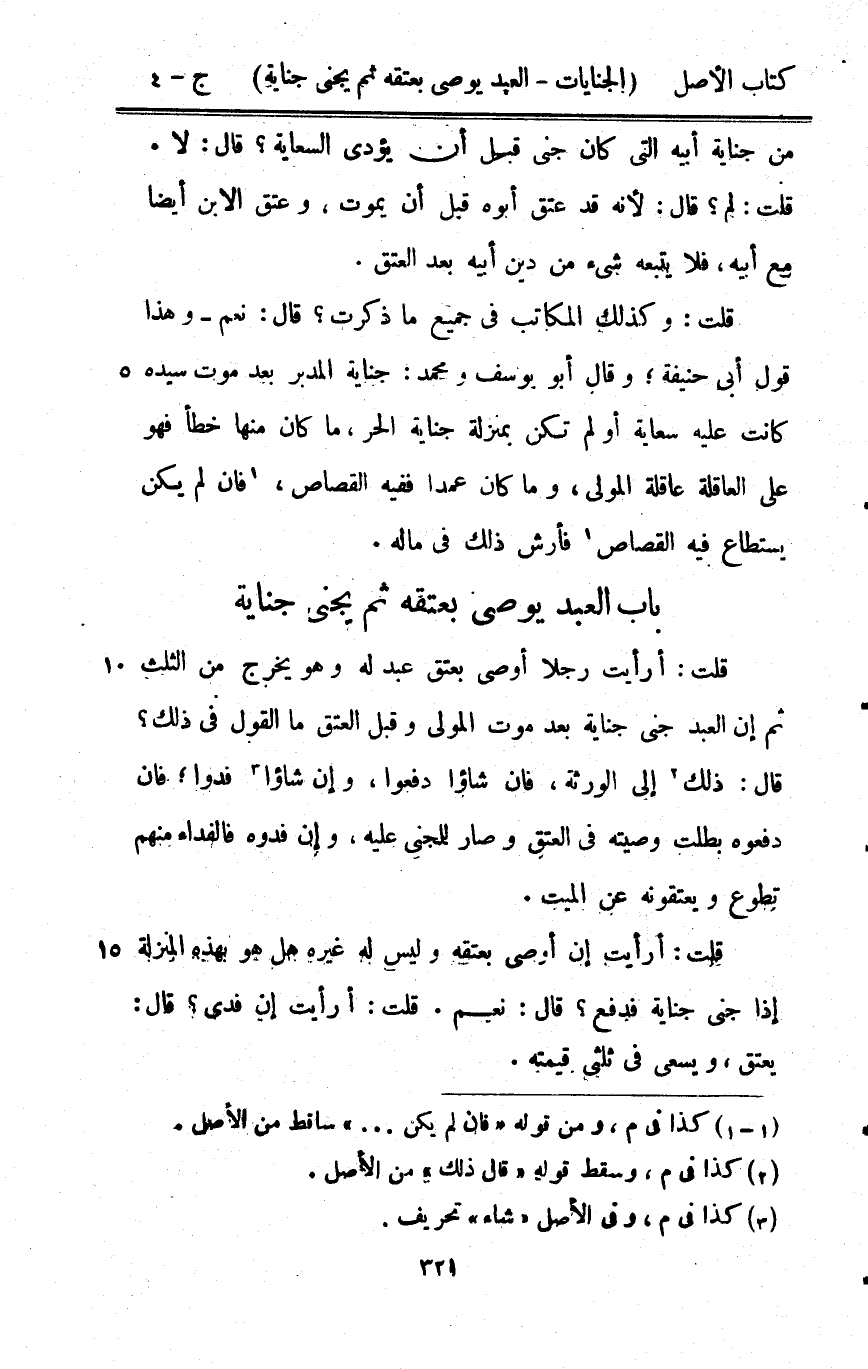 كتاب الأصل (الجنايات - العبد يوصى بعتقه ثم يجنى جناية) ج - ٤
من جناية أبيه التى كان جنى قبل أن يؤدى السعاية؟ قال: لا .
قلت: لم؟ قال: لأنه قد عتق أبوه قبل أن يموت ، و عتق الابن أيضا
مع أبيه ، فلا يتبعه شىء من دين أبيه بعد العتق .
قلت: و كذلك المكاتب فى جميع ما ذكرت؟ قال: نعم ـ و هذا
قول أبى حنيفة ؛ و قال أبو يوسف و محمد: جناية المدبر بعد موت سيده ٥
كانت عليه سعاية أو لم تكن بمنزلة جناية الحر ، ما كان منها خطأ فهو
على العاقلة عاقلة المولى ، و ما كان عمدا ففيه القصاص ، ١فان لم يكن
يستطاع فيه القصاص١ فأرش ذلك فى ماله .
باب العبد يوصى بعتقه ثم يجنى جناية
قلت: أرأيت رجلا أوصى بعتق عبد له و هو يخرج من الثلث ١٠
ثم إن العبد جنى جناية بعد موت المولى و قبل العتق ما القول فى ذلك؟
قال: ذلك٢ إلى الورثة ، فان شاؤا دفعوا ، و إن شاؤا٣ فدوا ؛ فان
دفعوه بطلت وصيته فى العتق و صار للجنى عليه ، و إن فدوه فالفداء منهم
تطوع و يعتقونه عن الميت .
قلت: أرأيت إن أوصى بعتقه و ليس له غيره هل هو بهذه المنزلة ١٥
إذا جنى جناية فدفع؟ قال: نعم . قلت: أرأيت إن فدى؟ قال:
يعتق ، و يسعى فى ثلثى قيمته .
(١-١) كذا فى م ، و من قوله «فان لم يكن ...» ساقط من الأصل .
(٢) كذا فى م ، وسقط قوله «قال ذلك» من الأصل .
(٣) كذا فى م ، و فى الأصل «شاء» تحريف .
٣٢١